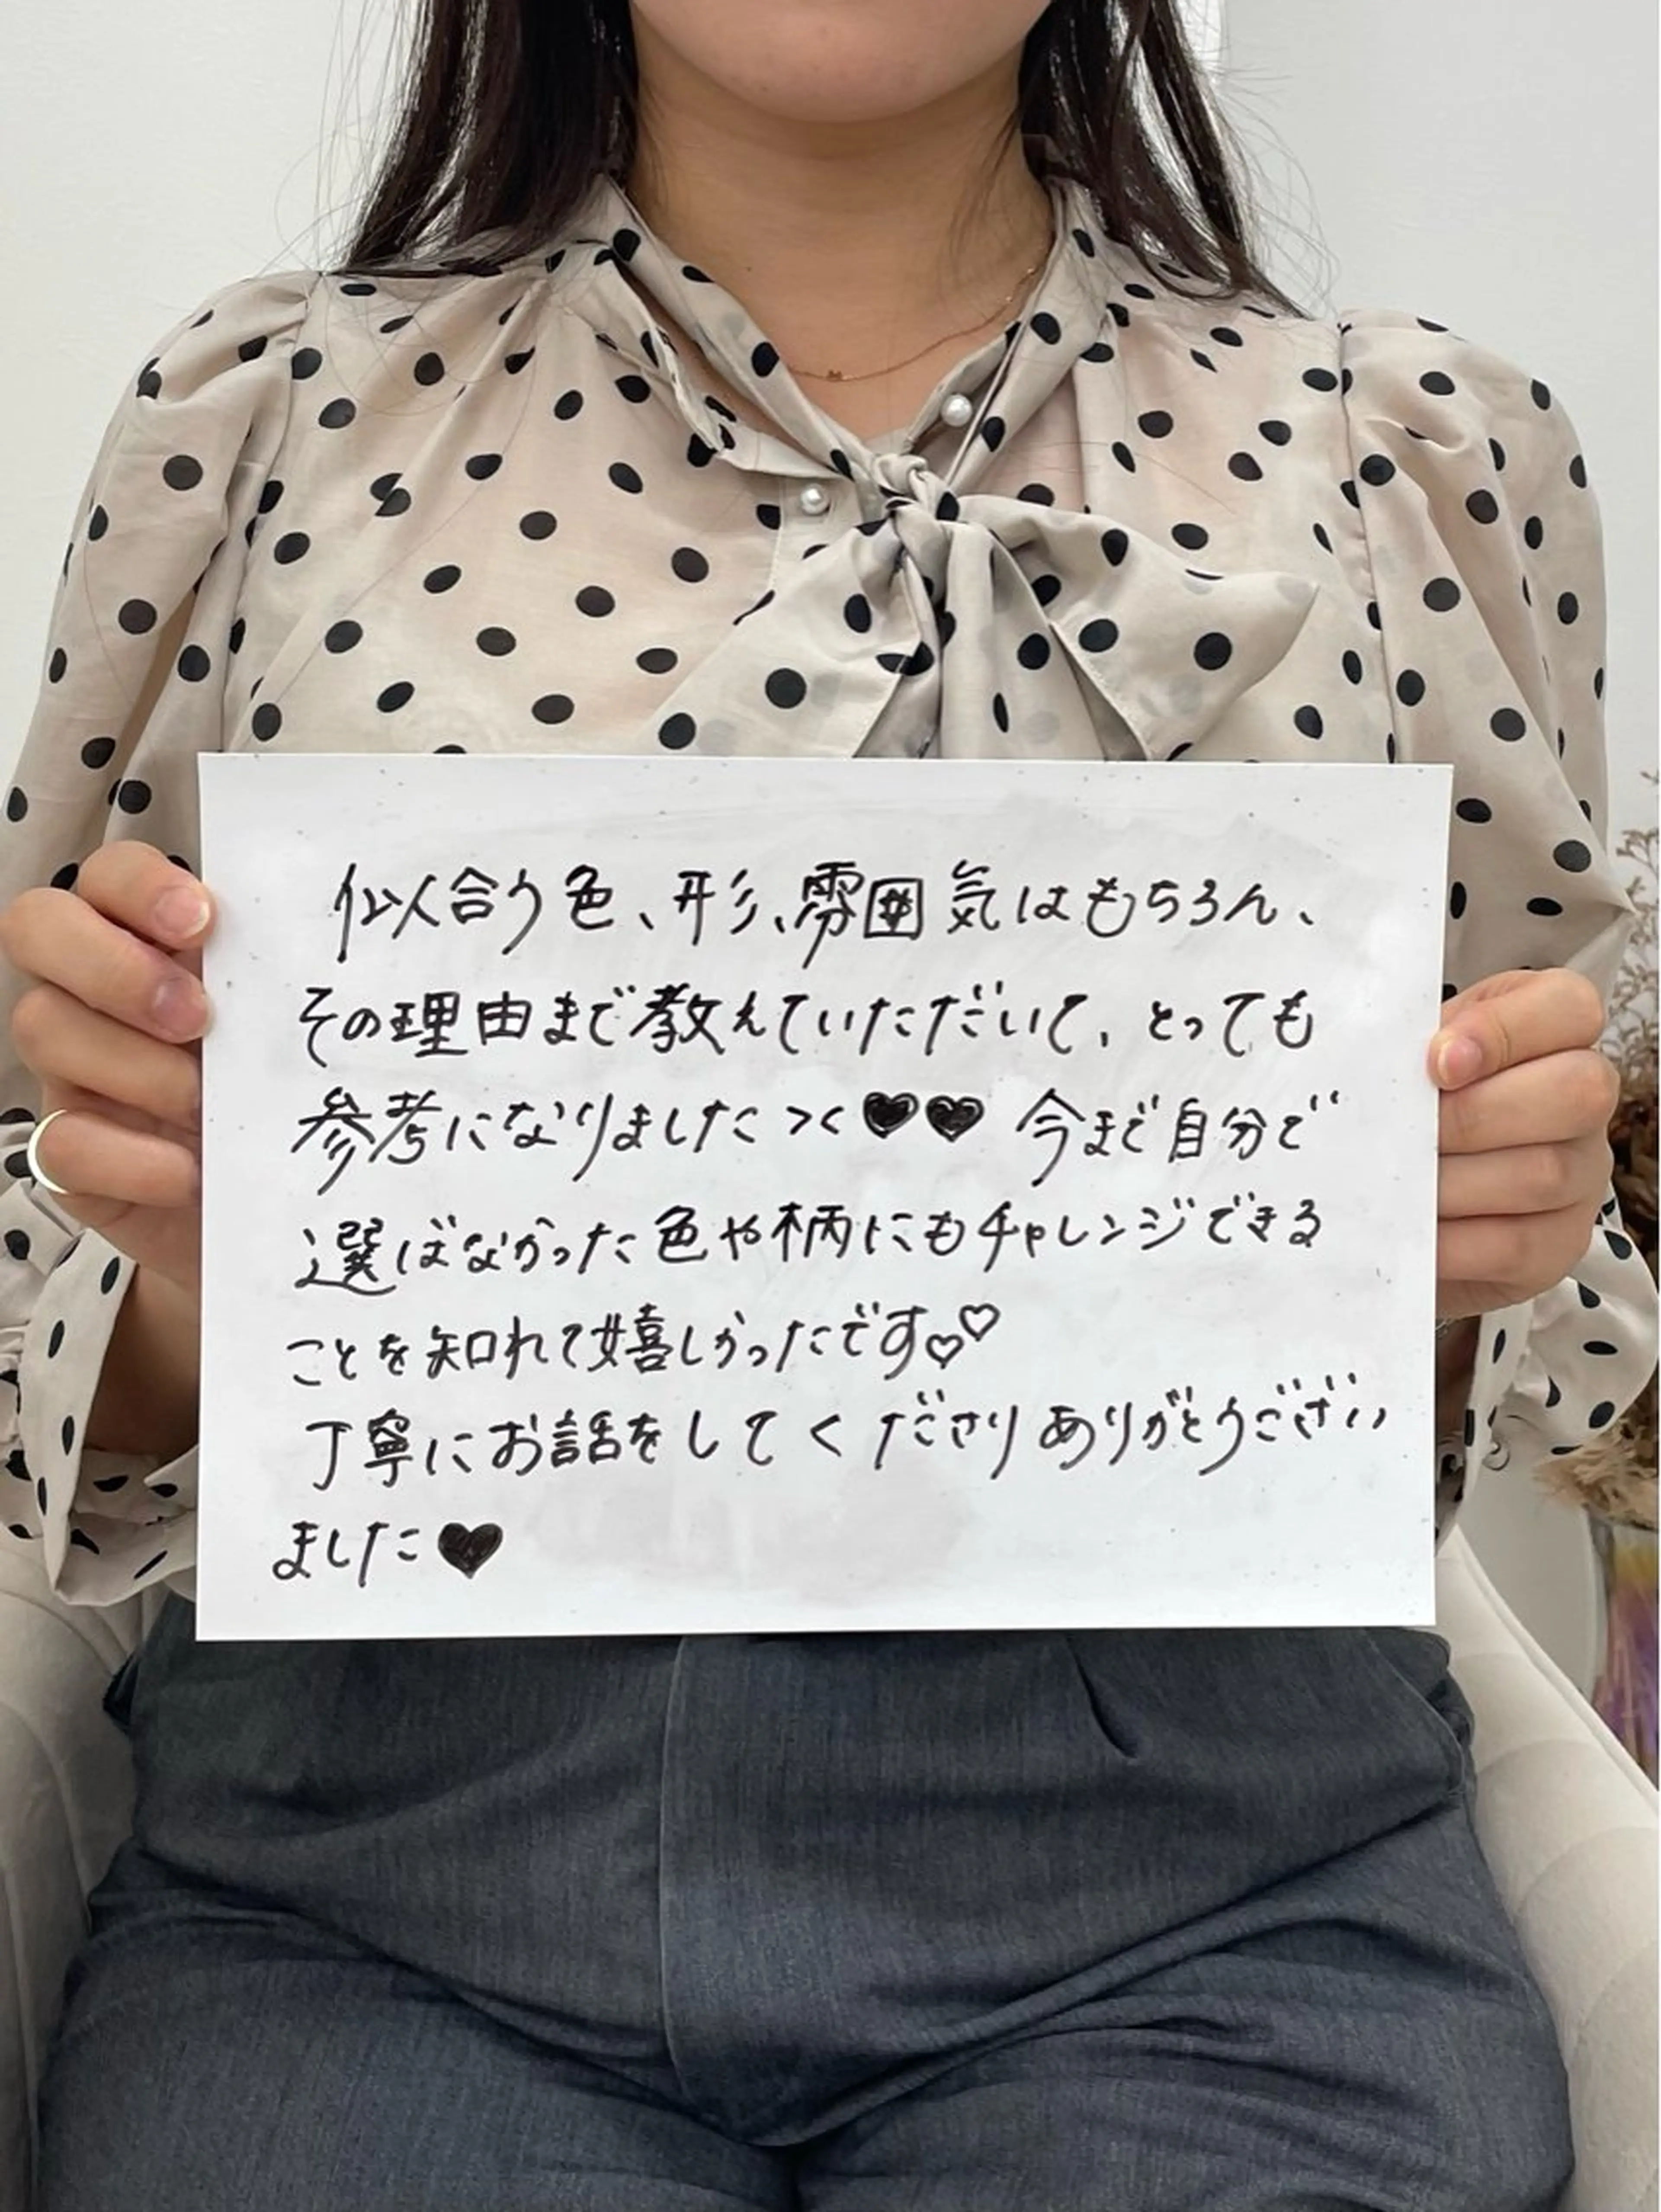 似合う色、形、雰囲気はもちろん、
その理由まで教えていただいて、とっても
参考になりました＞＜♥♥ 今まで自分で
選ばなかった色や柄にもチャレンジできる
ことを知れて嬉しかったです♡♡
丁寧にお話をしてくださりありがとうござい
ました♥